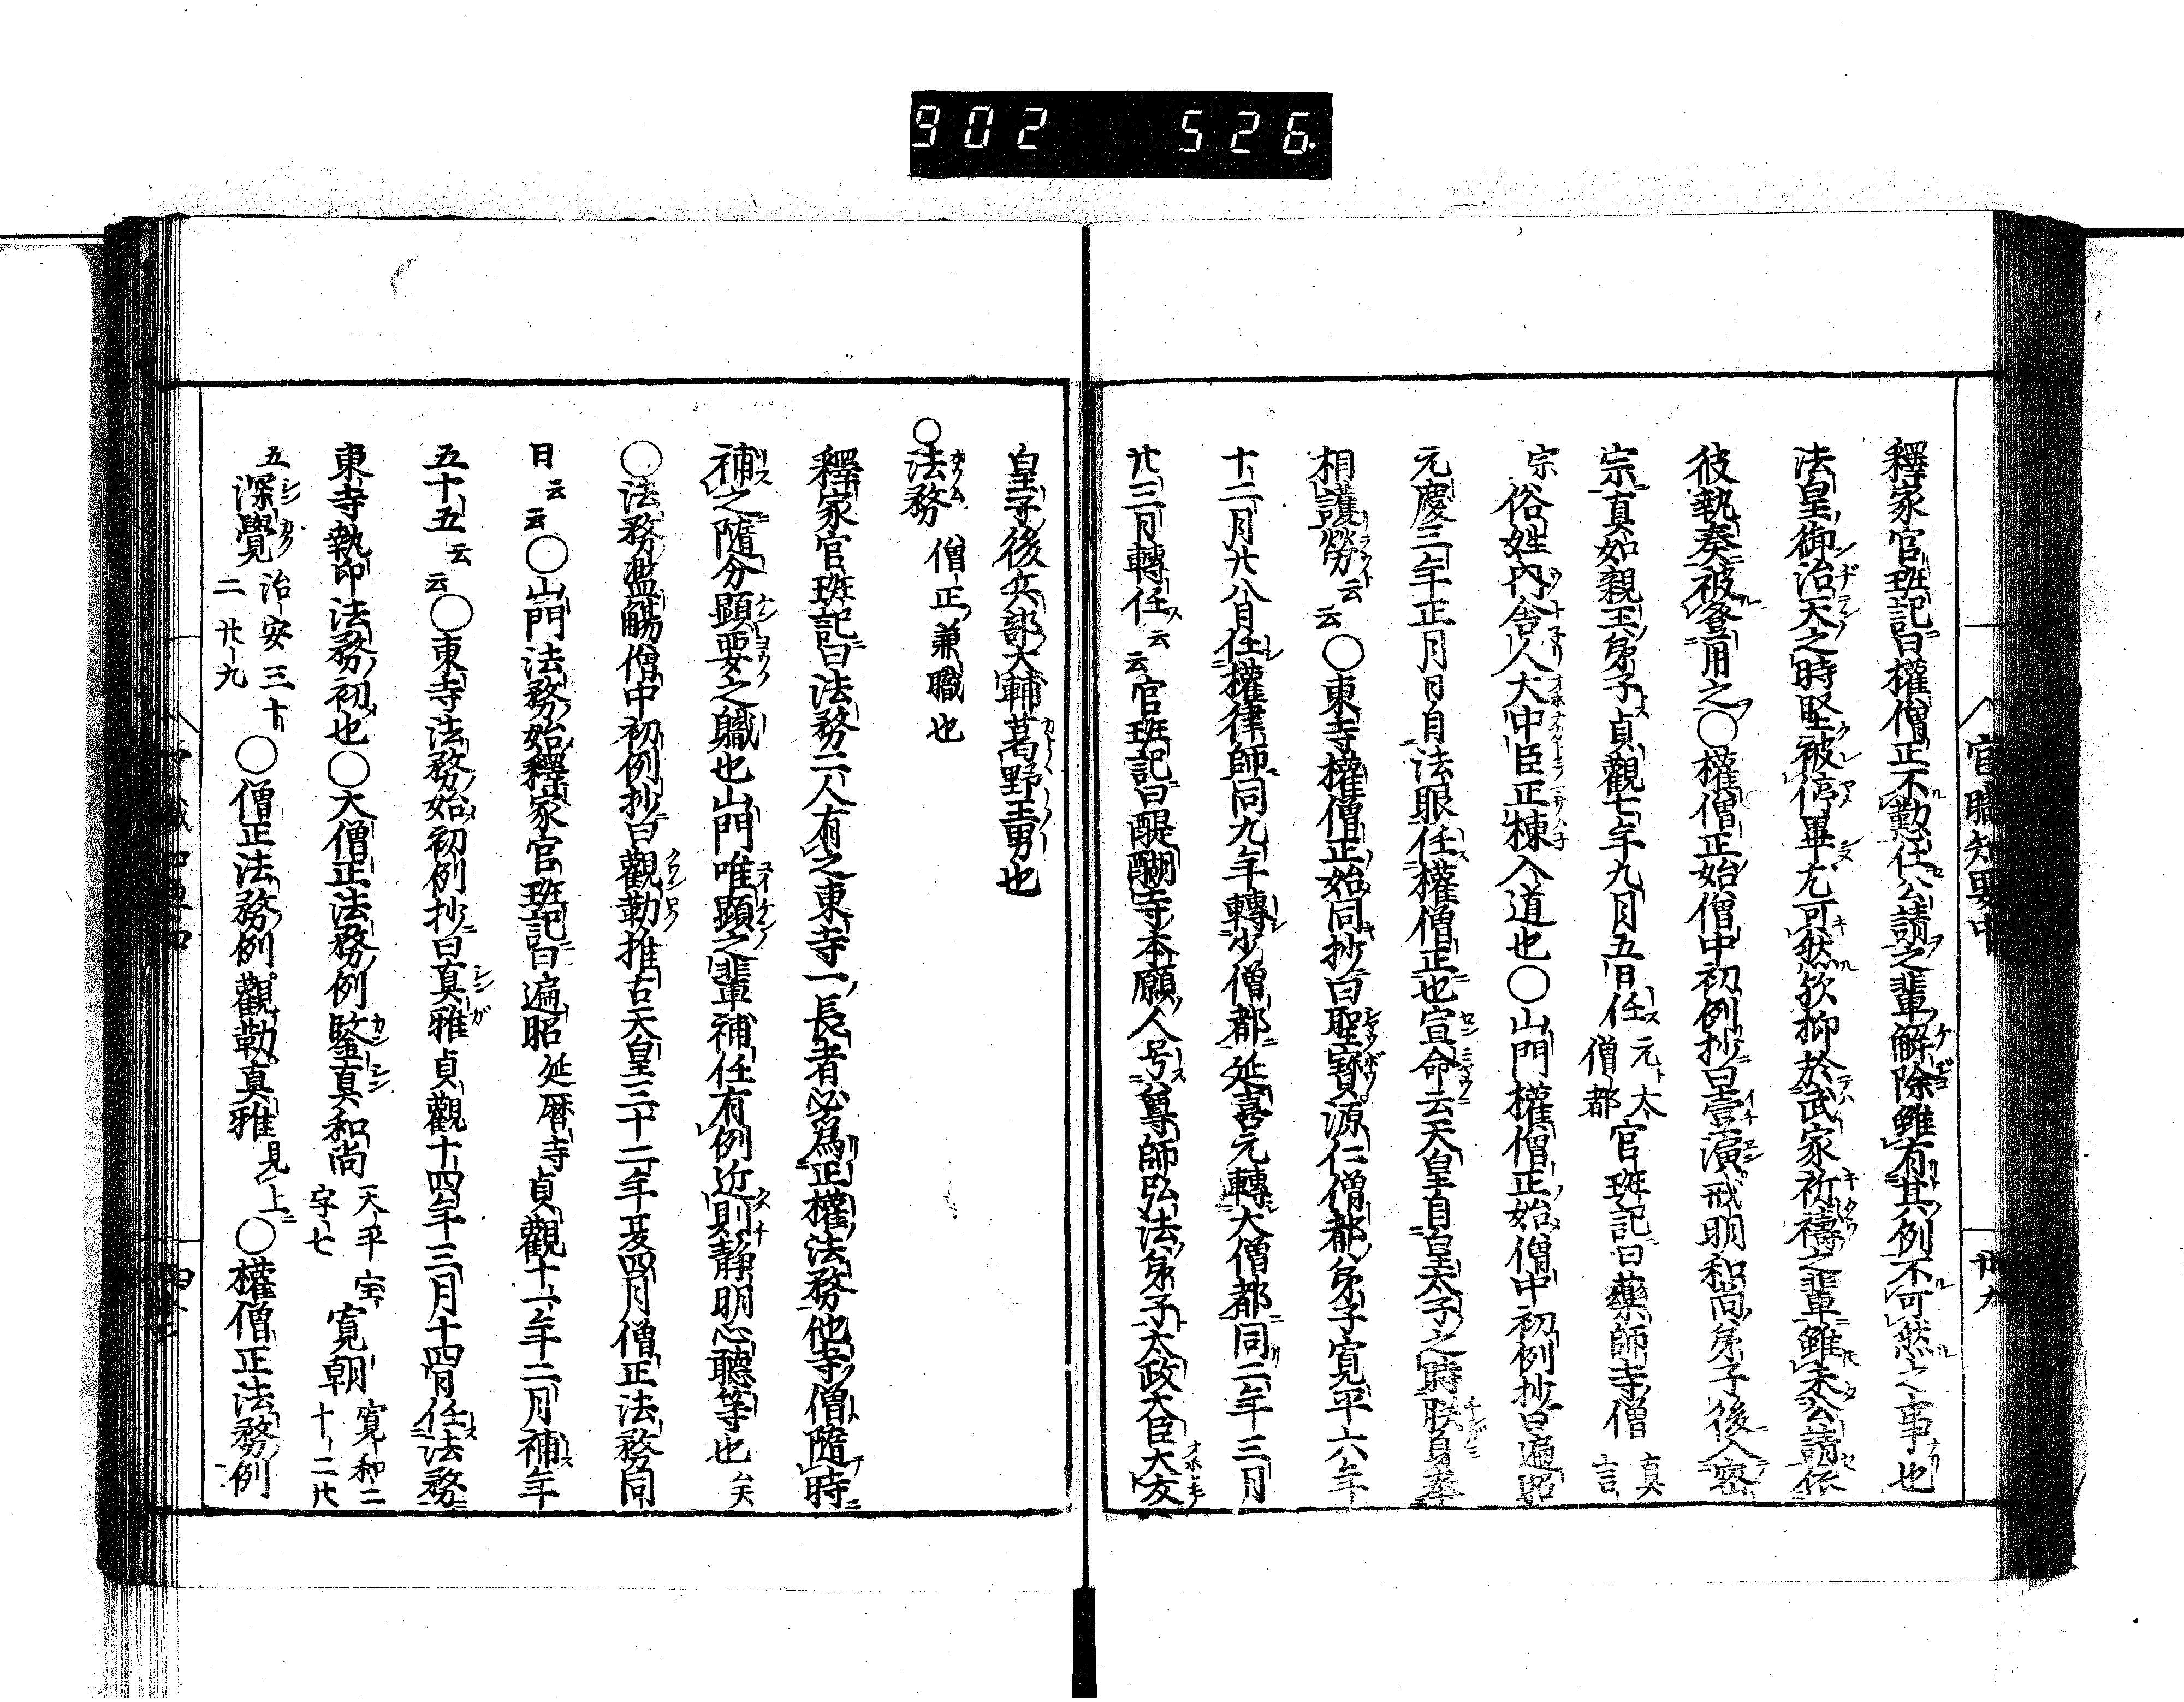 902 526
官職知要中
卅九
釋家官班記曰權僧正不勤仕公請之輩解除雖有其例不可然之事也
法皇御治天之時堅被停畢尤可然欤抑於武家祈禱之輩雖未公請依
彼執奏被登用之○權僧正始僧中初例抄曰壹演戒明和尚弟子後入密
宗真如親王弟子貞觀七年九月五日任元太僧都官班記曰藥師寺僧真言
宗俗姓內舍人大中臣正棟入道也○山門權僧正始僧中初例抄曰遍昭
元慶三年正月日自法眼任權僧正也宣命云天皇自皇太子之時朕身奉
相護勞云云○東寺權僧正始同抄曰聖寶源仁僧都弟子寬平六年
十二月廿八日任權律師同九年轉少僧都延喜元轉大僧都同二年三月
廿三日轉任云云官班記曰醍醐寺本願人号尊師弘法弟子太政大臣大友
皇子後兵部大輔葛野王男也
○法務 僧正兼職也
釋家官班記曰法務二人有之東寺一長者必為正權法務他寺僧隨時
補之隨分顯要之職也山門唯顯之輩補任有例近則靜明心聽等也
○法務濫觴僧中初例抄曰觀勒推古天皇三十二年夏四月僧正法務同
日云云○山門法務始釋家官班記曰遍昭延暦寺貞觀十一年二月補年
五十五云云○東寺法務始初例抄曰真雅貞觀十四年三月十四日任法務
東寺執印法務初也○大僧正法務例鑒真和尚天平宝字七寬朝寬和二十二廿
五深覺治安三十二廿九○僧正法務例觀勒真雅見上○權僧正法務例